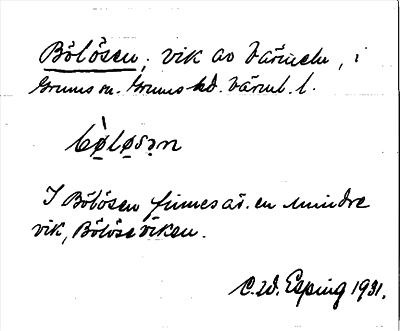 Bölösen, vik av Vänern, i
Grums sn. Grums hd. Värml. l.
bø̀løsən
I Bölösen finnes äv. en mindre
vik, Bölöseviken.
C.W. Esping 1931.